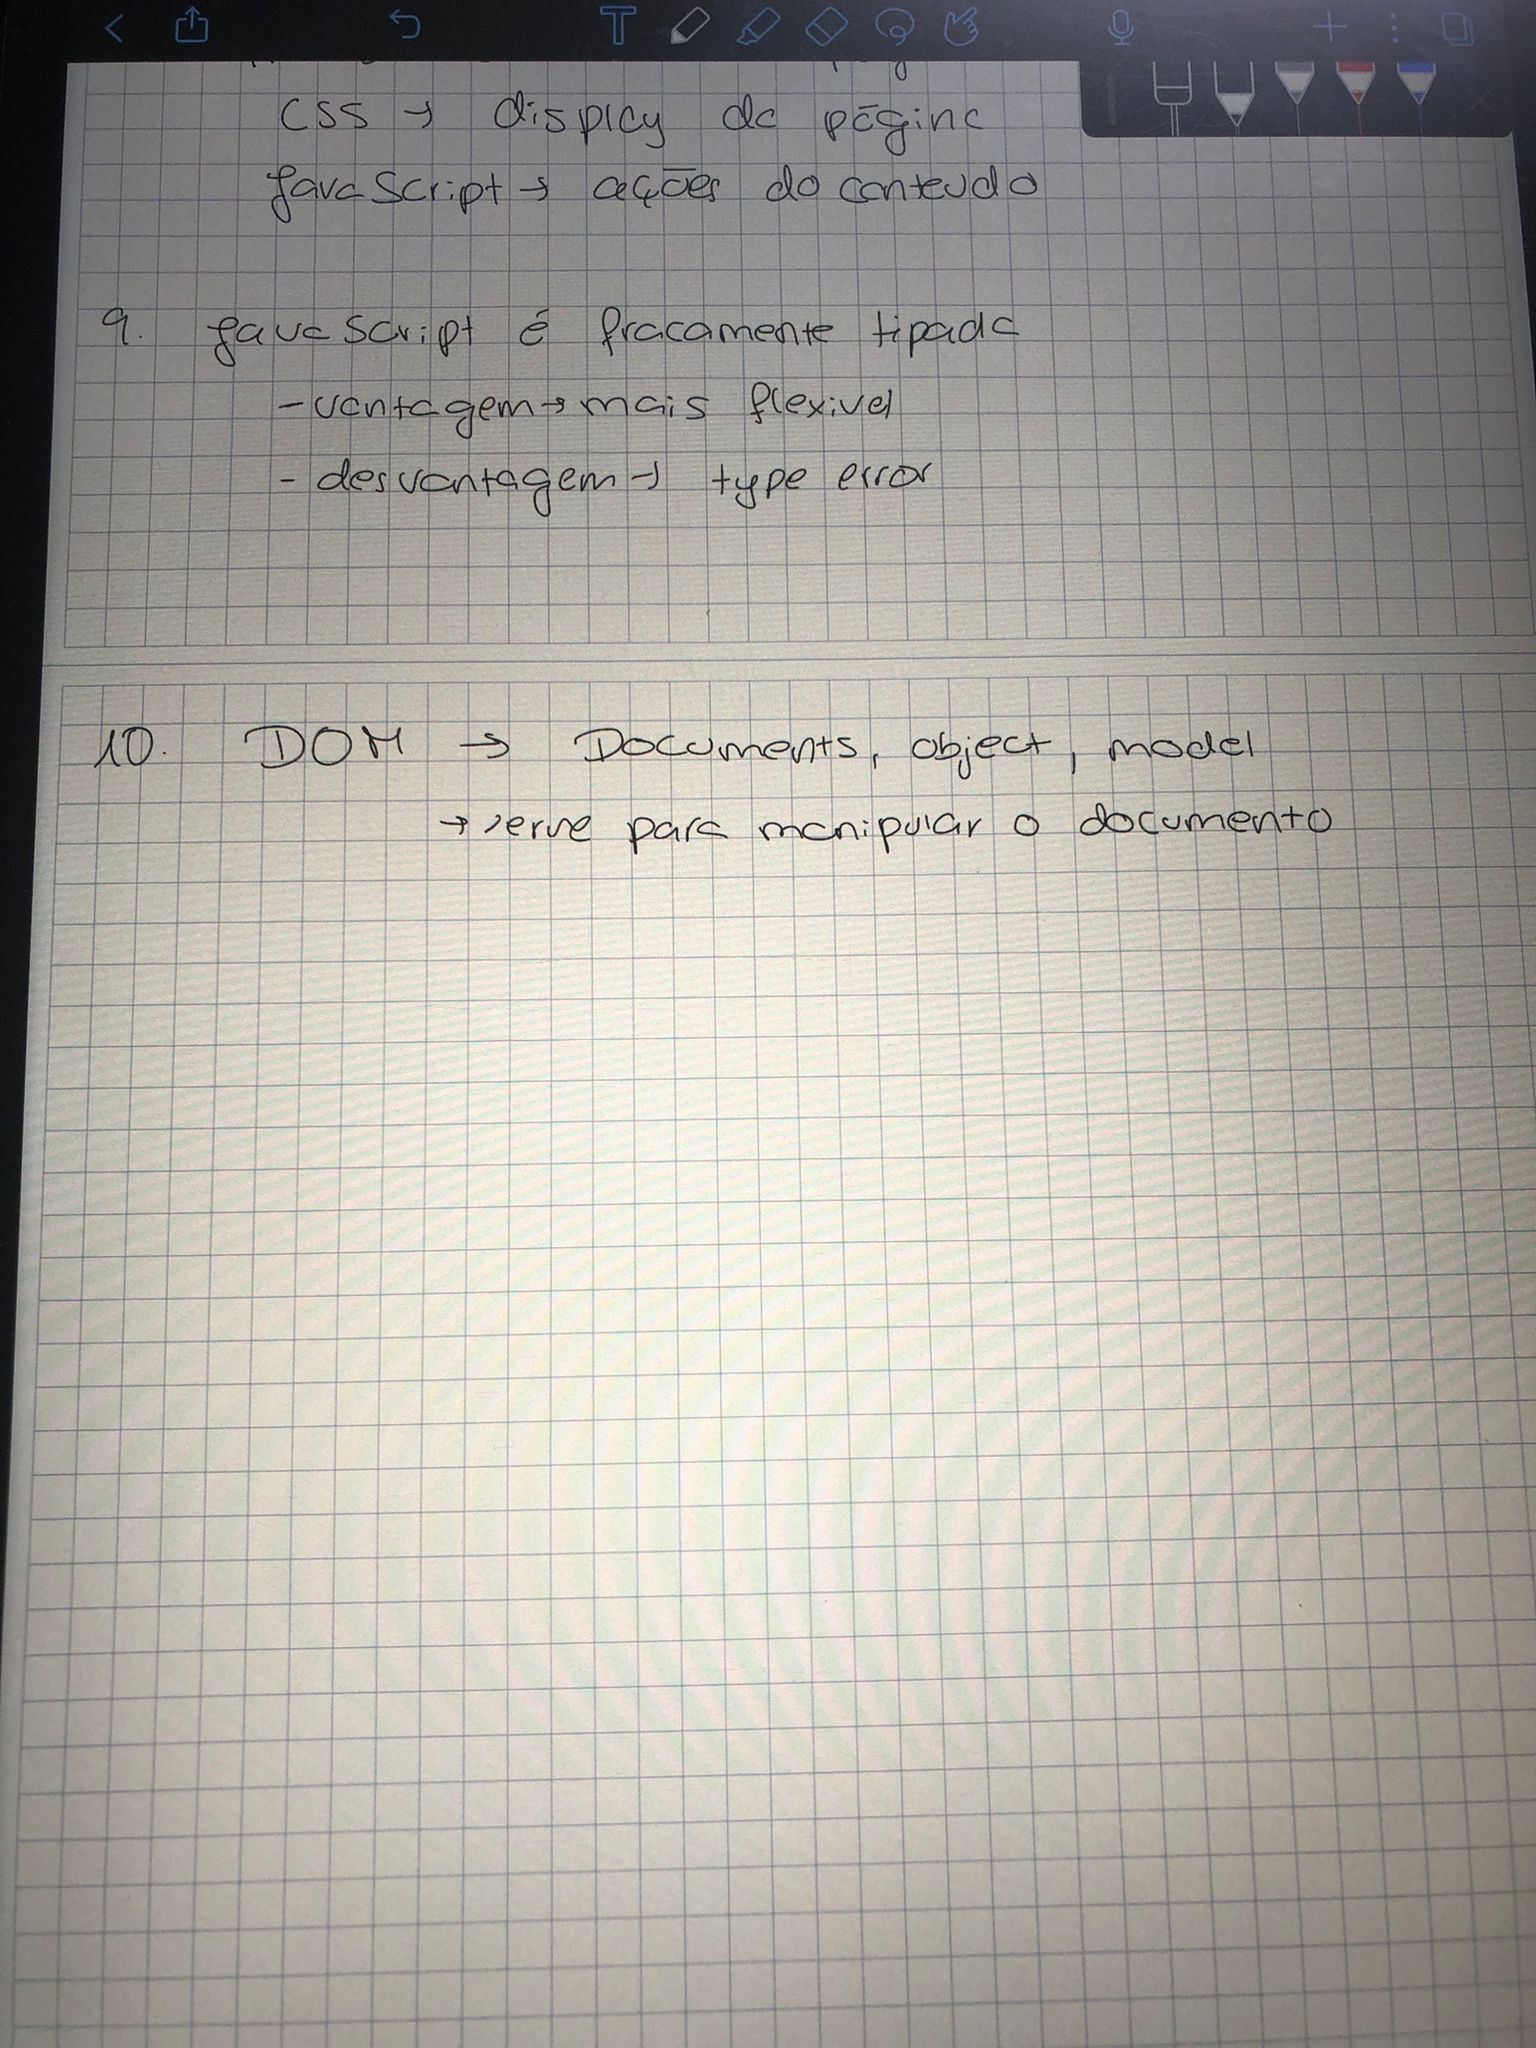 CSS → display da página
JavaScript → ações do conteudo
9. JavaScript é fracamente tipada
- vantagem → mais flexivel
- desvantagem → type error
10. DOM → Documents, object, model
→ serve para manipular o documento